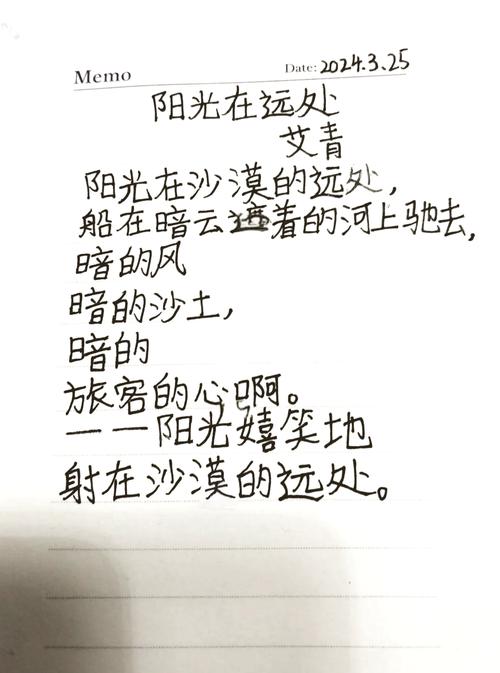 Memo
Date: 2024.3.25
阳光在远处
艾青
阳光在沙漠的远处,
船在暗云遮着的河上驰去,
暗的风
暗的沙土,
暗的
旅客的心啊。
——阳光嬉笑地
射在沙漠的远处。